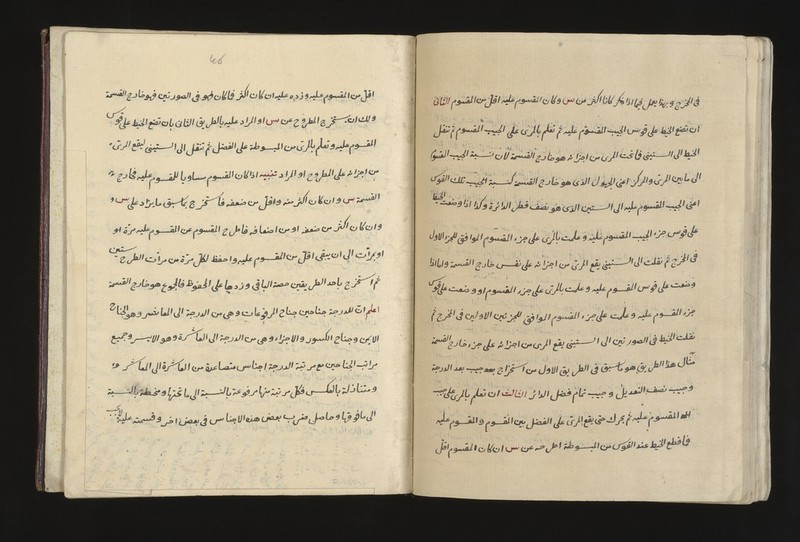 في المخرج وربما يعمل فيما اذا كانا اكثر من س وكان المقسوم عليه اقل من المقسوم الثاني
ان تضع الخيط على قوس الجيب المقسوم عليه ثم تعلم بالمرى على الجيب المقسوم ثم تنقل
الخيط الى الستيني فما تحت المرى من اجزائه هو خارج القسمة لان نسبة الجيب المقسوم
الى ما بين المرى والمركز اعني الجيب الذى هو خارج القسمة كنسبة الجيب تلك القوس
اعني الجيب المقسوم عليه الى الستين الذى هو نصف قطر الدائرة وكذا اذا وضعت الخيط
على قوس جزء الجيب المقسوم عليه وعلمت بالمرى على جزء المقسوم الموافق للجزء الاول
في المخرج ثم نقلت الى الستيني يقع المرى من اجزائه على نفس خارج القسمة واما اذا
وضعت على قوس المقسوم عليه وعلمت بالمرى على جزء المقسوم او وضعت على قوس
جزء المقسوم عليه وعلمت على جزء المقسوم الموافق للجزئين الاولين في المخرج ثم
نقلت الخيط في الصورتين الى الستيني يقع المرى من اجزائه على جزء خارج القسمة
مثال هذا الطريق هو ما سبق في الطريق الاول من استخراج بعد جيب بعد الدرجة
وجيب نصف التعديل وجيب تمام فضل الدائر الثالث ان تعلم بالمرى على جيب
المقسوم عليه ثم يحرك حتى يقع المرى على الفضل بين المقسوم والمقسوم عليه
فما قطع الخيط عند القوس من المبسوطة احل عن س ان كان المقسوم اقل
اقل من المقسوم عليه وزده عليه ان كان اكثر فما كان فهو في الصورتين فهو خارج القسمة
ولك ان تستخرج المطروح عن س او المزاد عليه بالطريق الثاني بان تضع الخيط على قوس
المقسوم عليه وتعلم بالمرى من المبسوطة على الفضل ثم تنقل الى الستيني ليقع المرى
من اجزائه على المطروح او المزاد تنبيه اذا كان المقسوم مساويا للمقسوم عليه فخارج
القسمة س وان كان اكثر منه واقل من ضعفه فاستخرج بما سبق ما يزاد على س
وان كان اكثر من ضعفه او من اضعافه فاطرح المقسوم عن المقسوم عليه مرة او
او مرات الى ان يبقى اقل من المقسوم عليه واحفظ لكل مرة من مرات الطرح ستين
ثم استخرج باحد الطريقين حصة الباقي وزدها على المحفوظ فالمجموع هو خارج القسمة
اعلم ان للدرجة جناحين جناح المرفوعات وهي من الدرجة الى العاشر وهو الجناح
الايمن وجناح الكسور والاجزاء وهي من الدرجة الى العاشرة وهو الايسر وجميع
مراتب الجناحين مع مرتبة الدرجة اجناس متصاعدة من العاشرة الى العاشر
ومتنازلة بالعكس فكل مرتبة منها مرفوعة بالنسبة الى ما تحتها ومنحطة بالنسبة
الى ما فوقها وحاصل ضرب بعض هذه الاجناس في بعض اخر وقسمته عليه